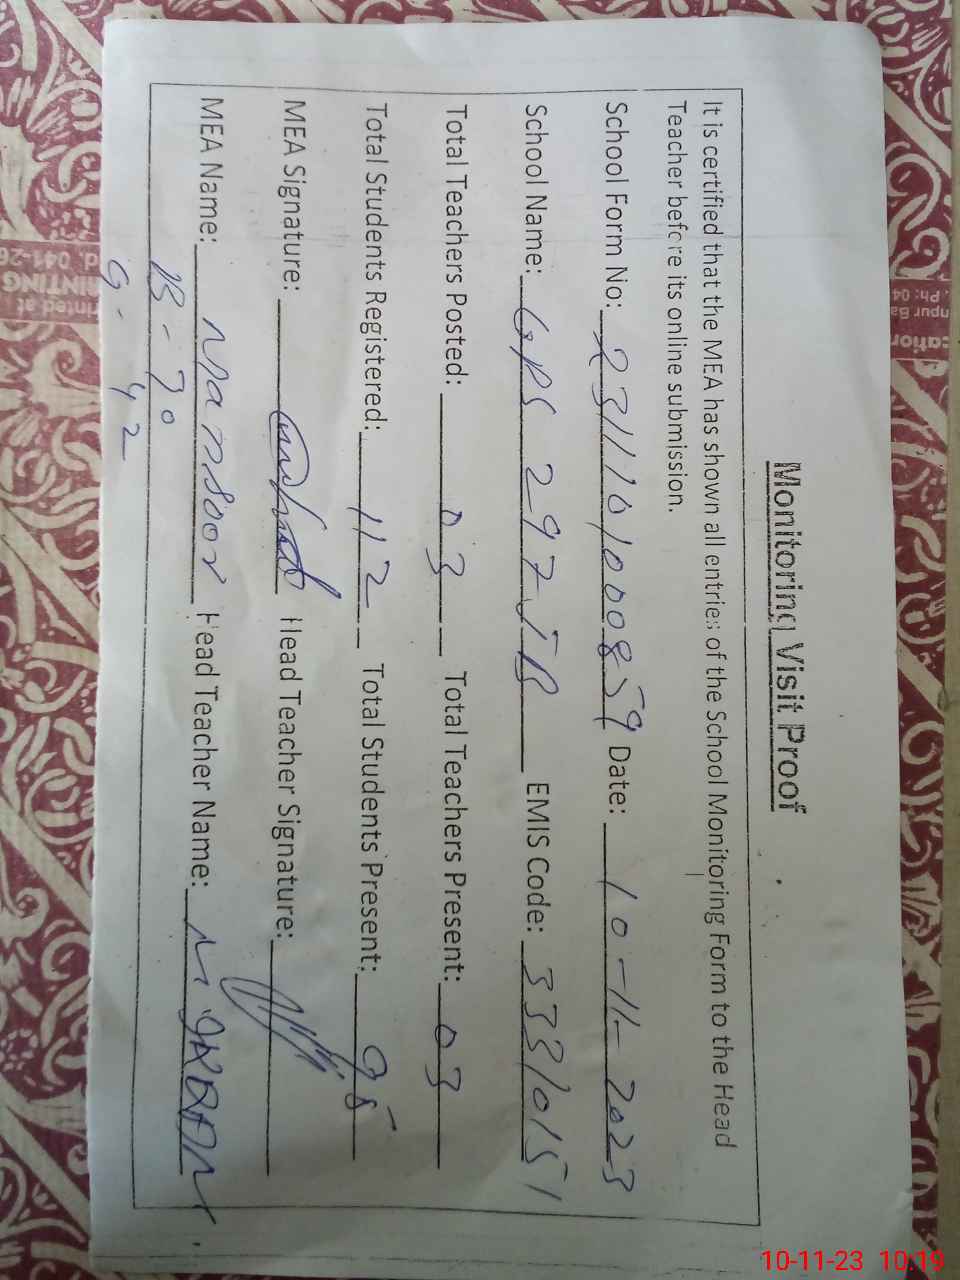 Monitoring Visit Proof
It is certified that the MEA has shown all entries of the School Monitoring Form to the Head
Teacher before its online submission.
School Form No: 23111010100859 Date: 10-11-2023
School Name: GPS 297 JB EMIS Code: 33310151
Total Teachers Posted: 03 Total Teachers Present: 03
Total Students Registered: 112 Total Students Present: 95
MEA Signature: Head Teacher Signature:
MEA Name: Mansoor Head Teacher Name: M. IKRAM
B- 70
G- 42
10-11-23 10:19